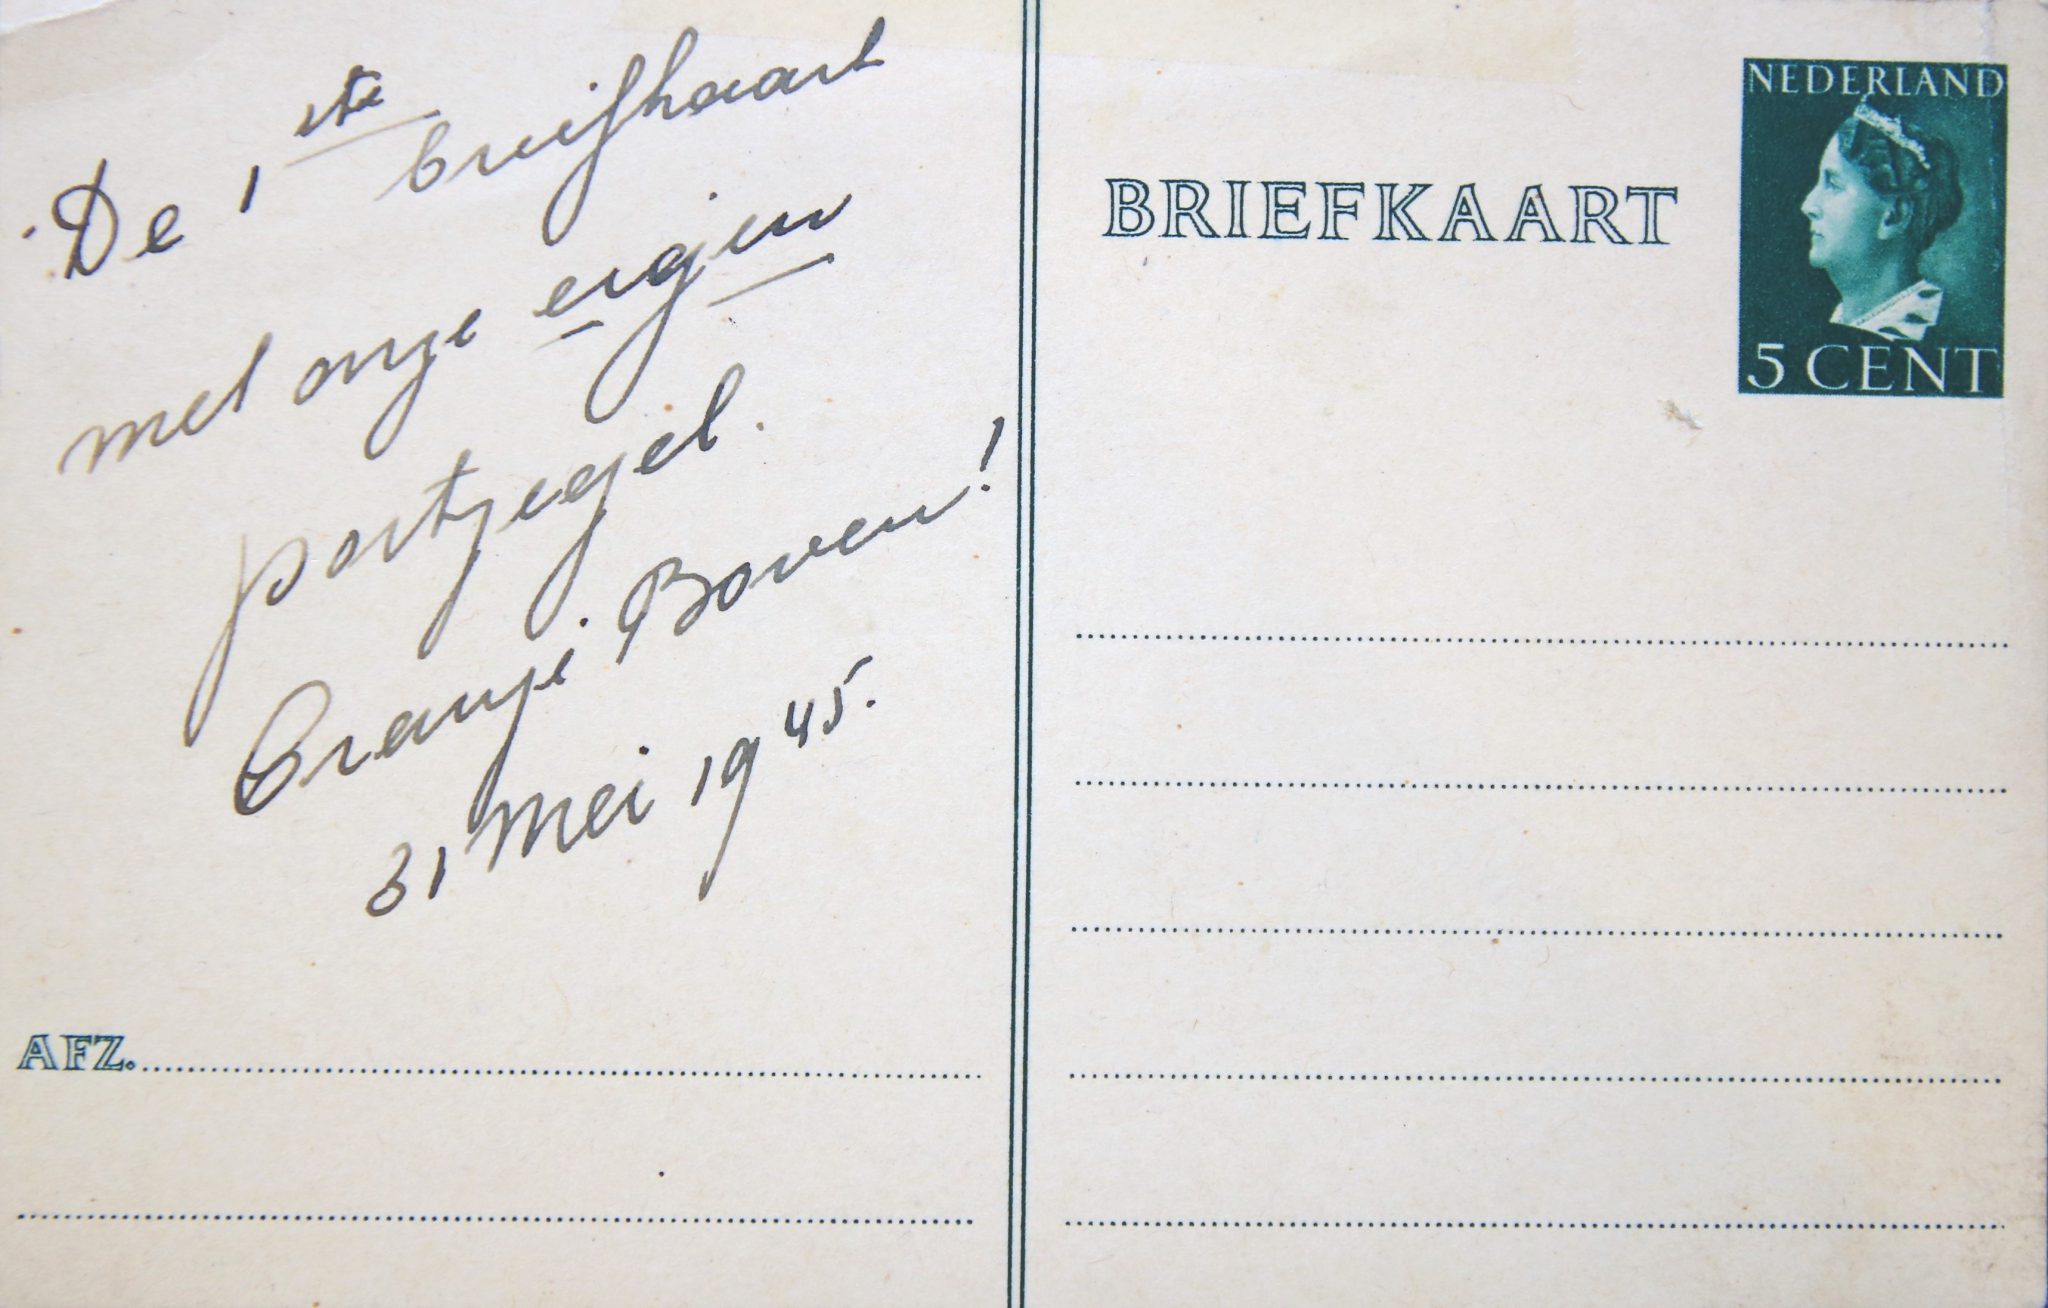 De 1ste briefkaart
met onze eigen
postzegel.
Oranje Boven!
31 Mei 1945.
AFZ.
NEDERLAND
BRIEFKAART
5 CENT